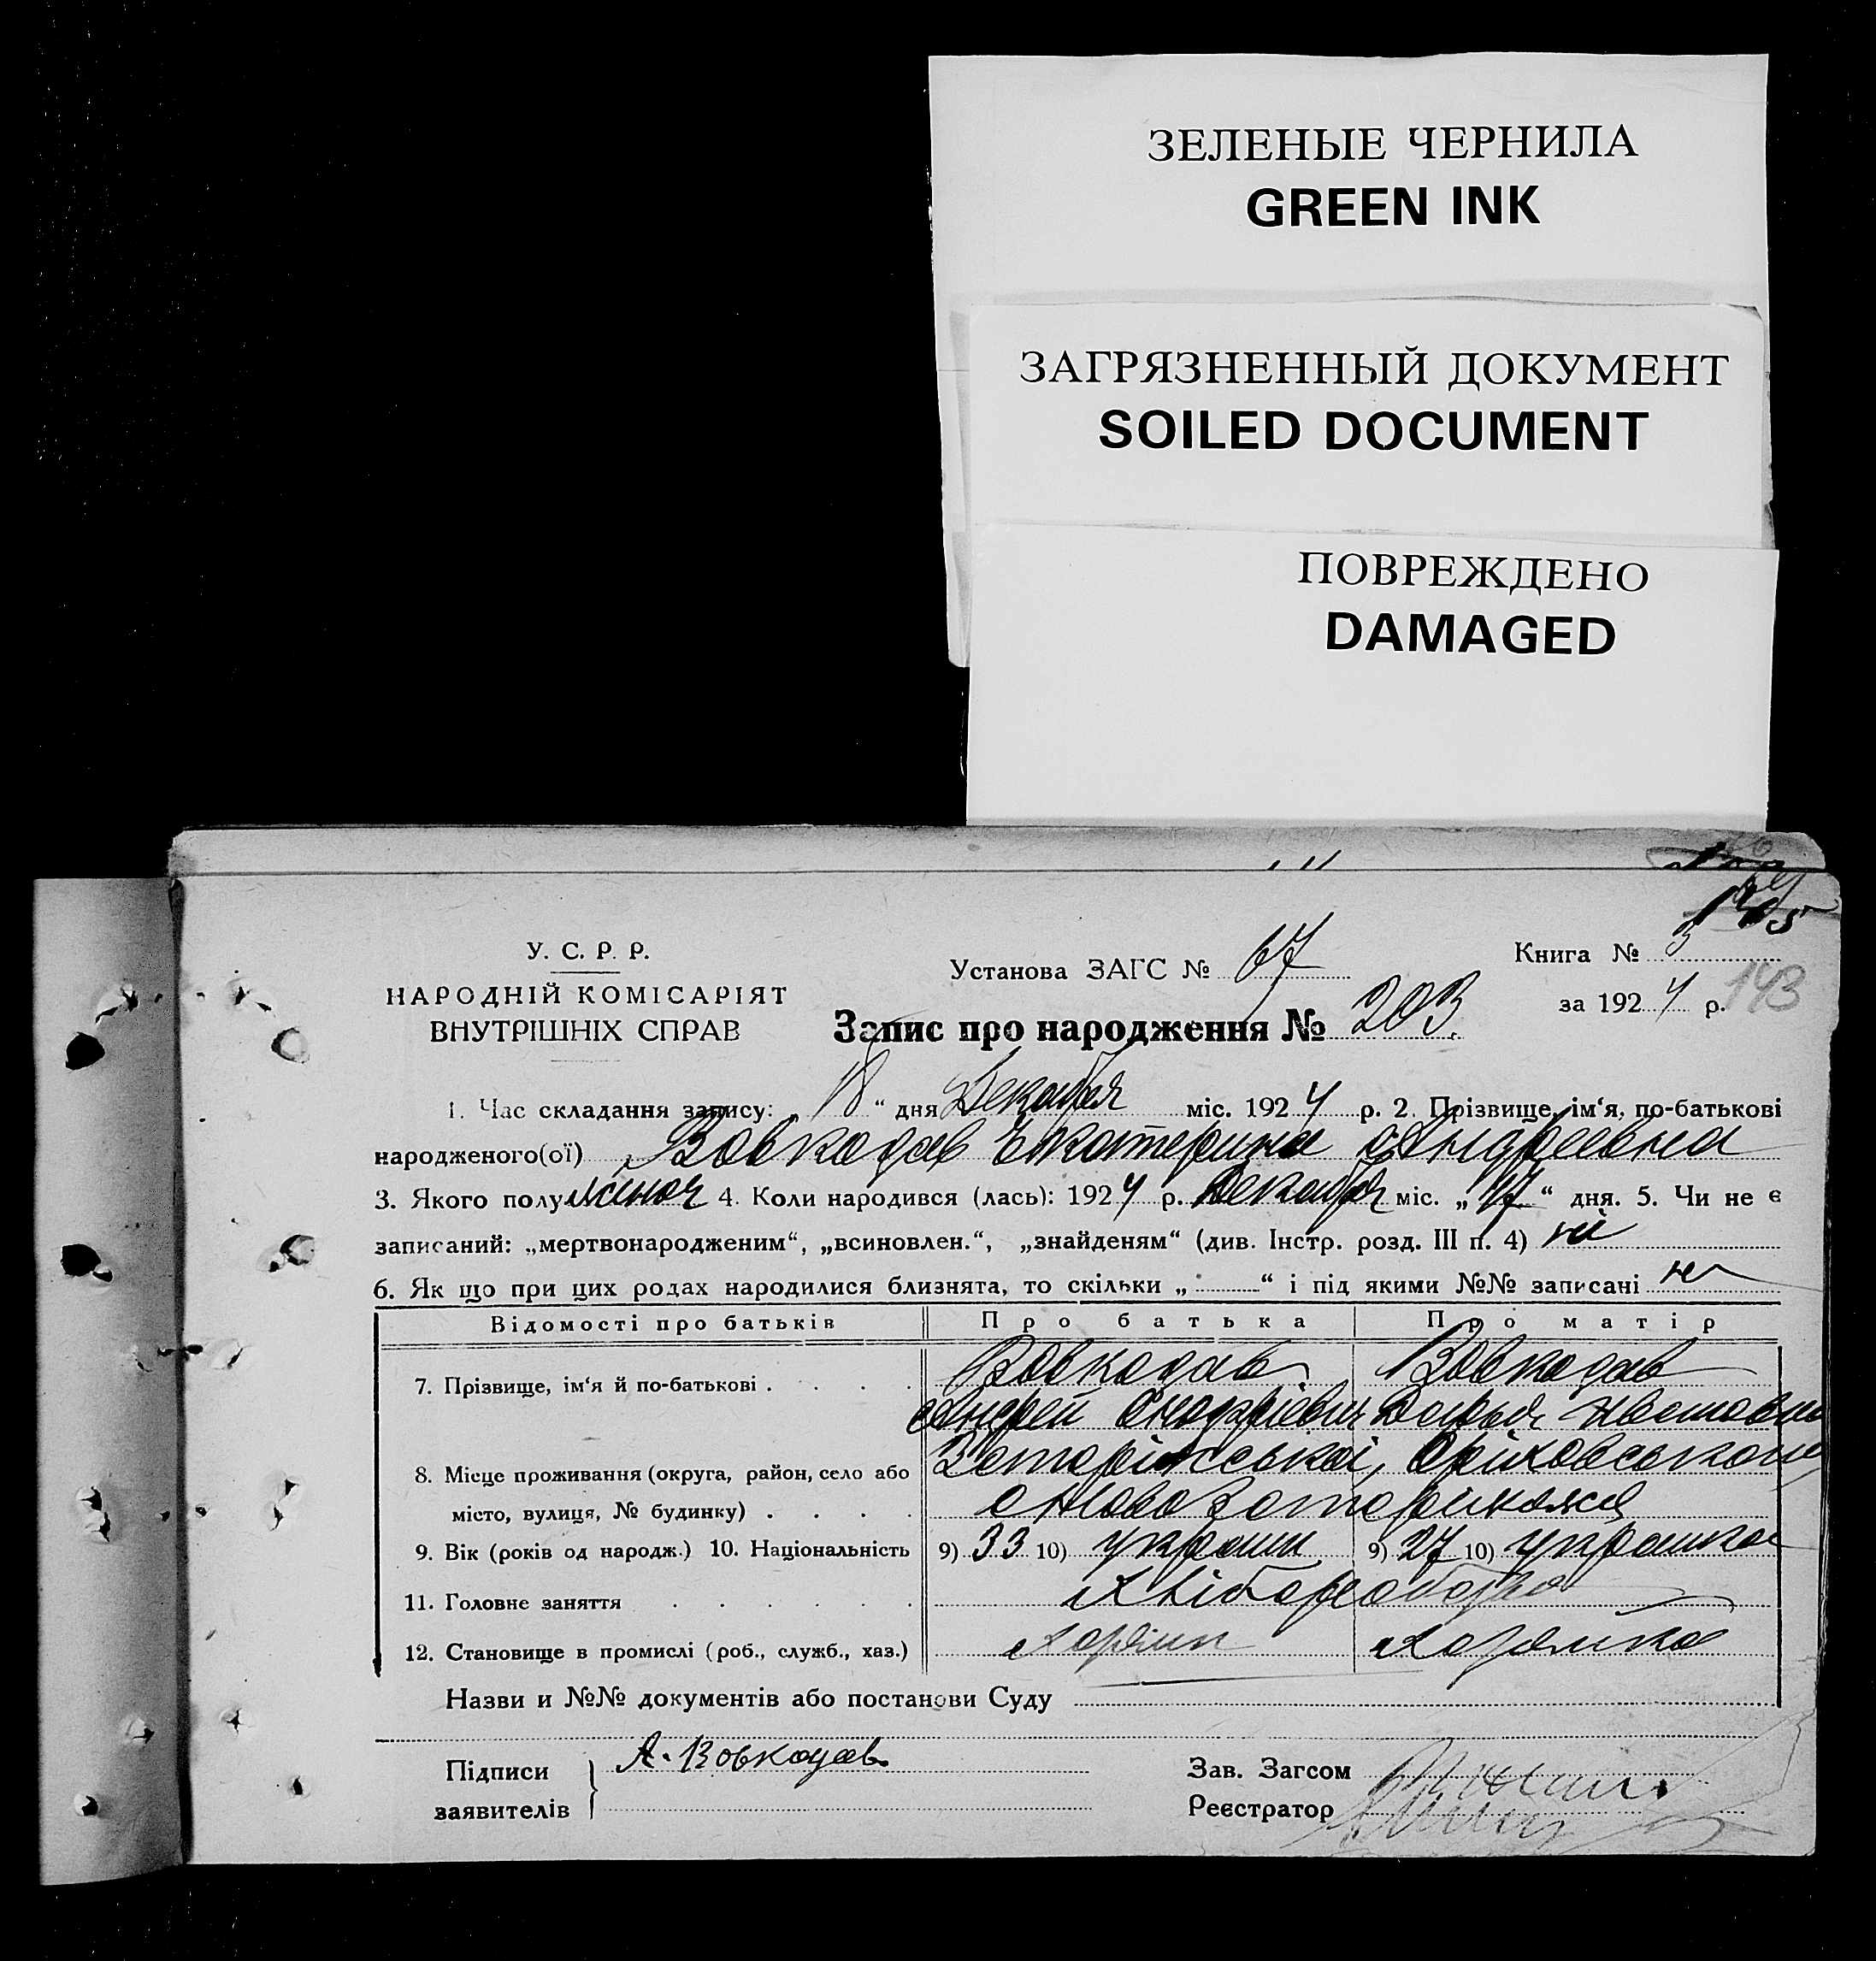 ЗЕЛЕНЫЕ ЧЕРНИЛА
GREEN INK
ЗАГРЯЗНЕННЫЙ ДОКУМЕНТ
SOILED DOCUMENT
ПОВРЕЖДЕНО
DAMAGED
У. С. Р. Р.
НАРОДНІЙ КОМІСАРІЯТ
ВНУТРІШНІХ СПРАВ
Установа ЗАГС № 67
Книга № 3
за 1924 р. 143
Запис про народження № 203.
1. Час складання запису: „18“ дня Декабря міс. 1924 р. 2. Прізвище, ім‘я, по-батькові
народженого(ої) Вовкодав Екатерина Андреевна
3. Якого полу жіноч 4. Коли народився (лась): 1924 р. Декабря міс. „17“ дня. 5. Чи не є
записаний: „мертвонародженим“, „всиновлен.“, „знайденям“ (див. Інстр. розд. III п. 4) ні
6. Як що при цих родах народилися близнята, то скільки „ “ і під якими №№ записані не
Відомості про батьків Про батька Про матір
7. Прізвище, ім‘я й по-батькові . . . . Вовкодав Вовкодав
Андрей Дарья
8. Місце проживання (округа, район, село або Запоріжської, Оріховського
місто, вулиця, № будинку) . . . .
9. Вік (років од народж.) 10. Національність 9) 33 10) украин 9) 27 10) украинка
11. Головне заняття . . . . . . Хлібороб
12. Становище в промислі (роб., служб., хаз.) Хазяин Хазяйка
Назви и №№ документів або постанови Суду
Підписи А. Вовкодав
заявителів
Зав. Загсом
Реєстратор